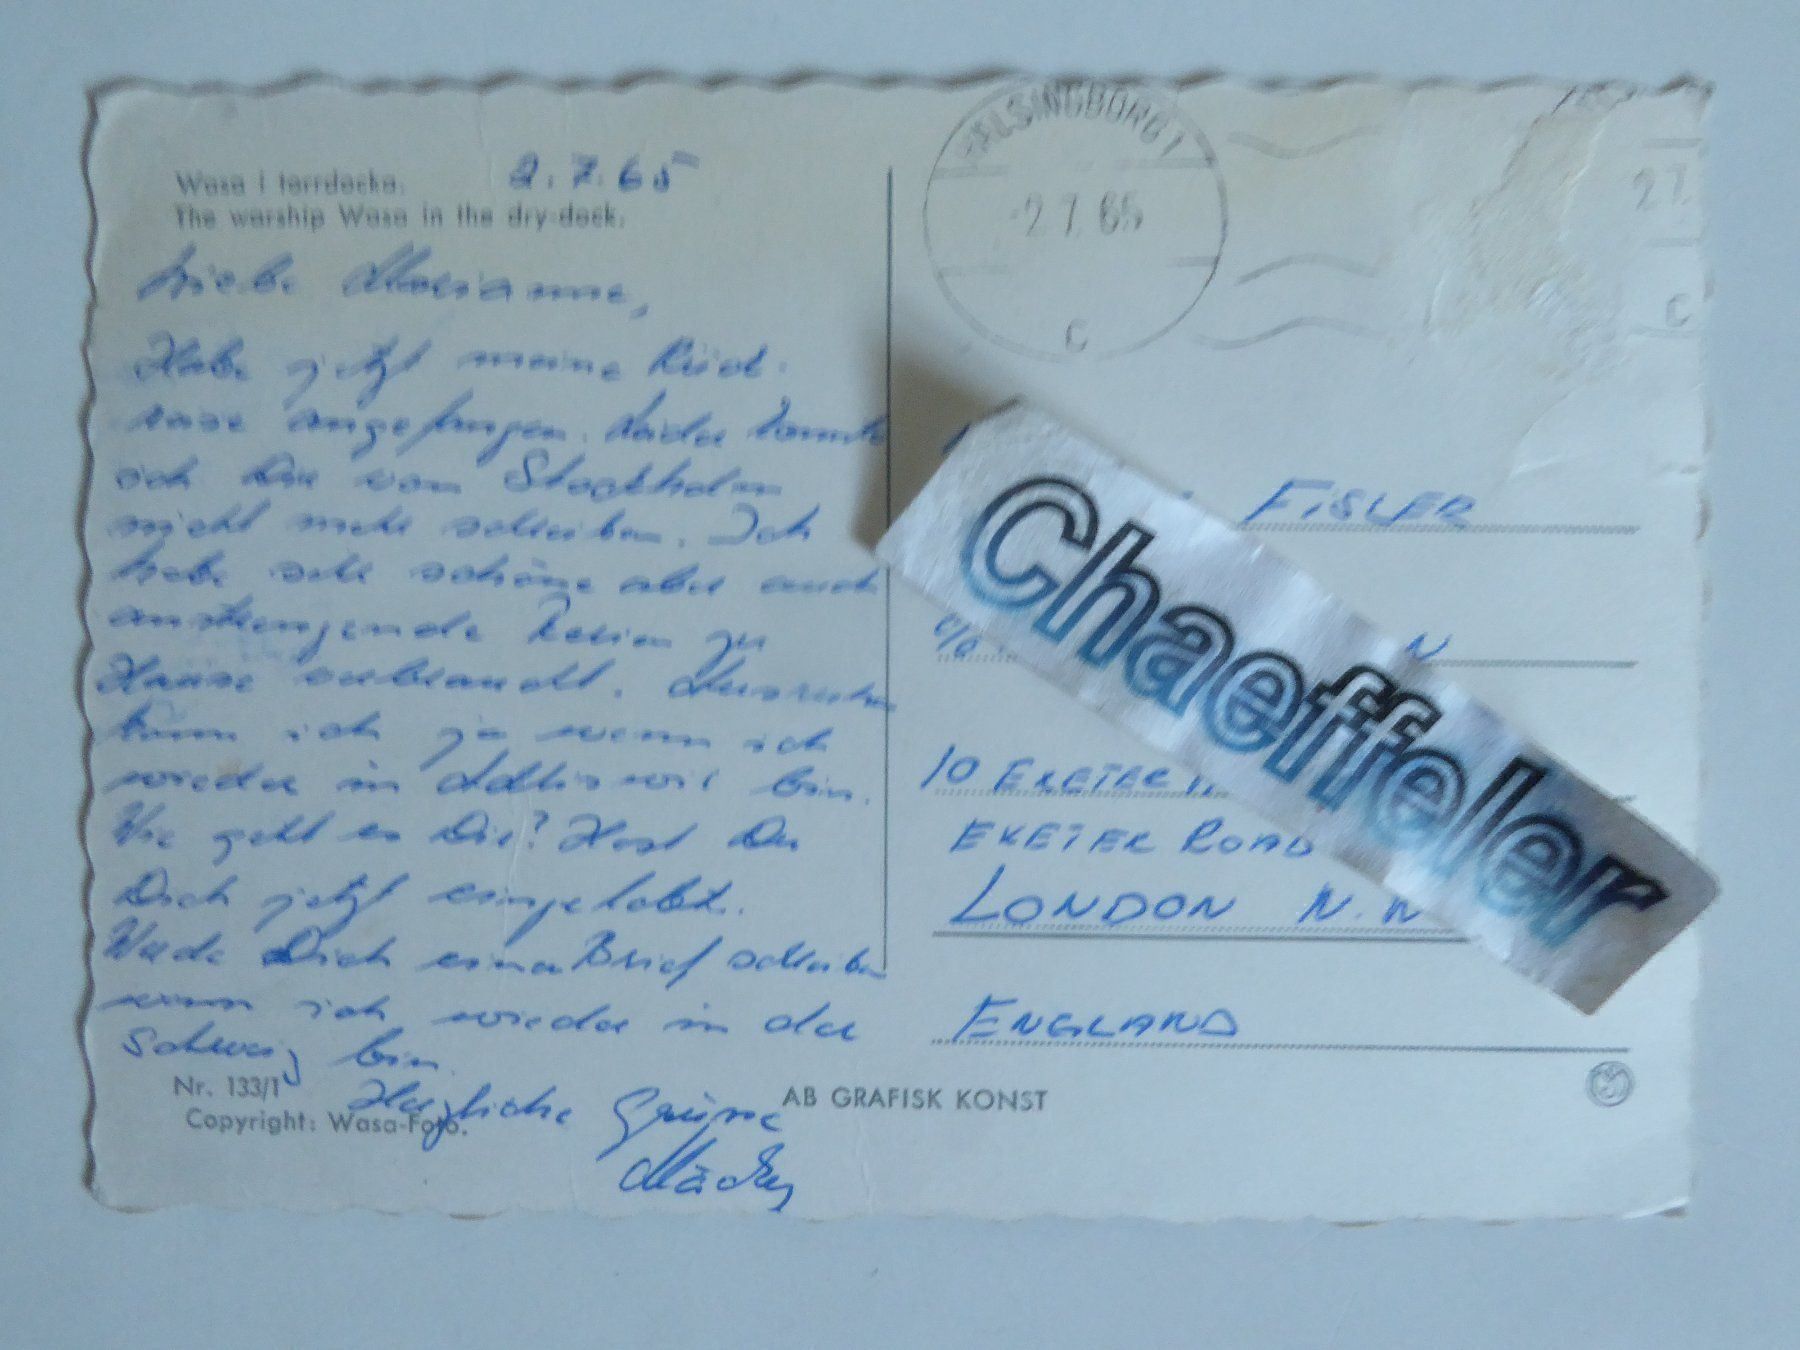 Wasa i torrdocka.
2.7.65
The warship Wasa in the dry-dock.
Liebe Marianne,
Habe jetzt meine Rück-
reise angefangen. Leider konnte
ich Dir von Stockholm
nicht mehr schreiben. Ich
habe sehr schöne aber auch
anstrengende Ferien zu
Hause verbracht. Ausruhen
kann ich ja wenn ich
wieder in Adliswil bin.
Wie geht es Dir? Hast Du
Dich jetzt eingelebt.
Werde Dich einen Brief schreiben
wenn ich wieder in der
Schweiz bin.
Herzliche Grüsse
Nr. 133/1
Copyright: Wasa-Foto.
AB GRAFISK KONST
HÄLSINGBORG 1
-2 7. 65
C
27.
C
FISLER
c/o
N
10 EXETER
EXETER ROAD
LONDON N.W
ENGLAND
Chaeffeler